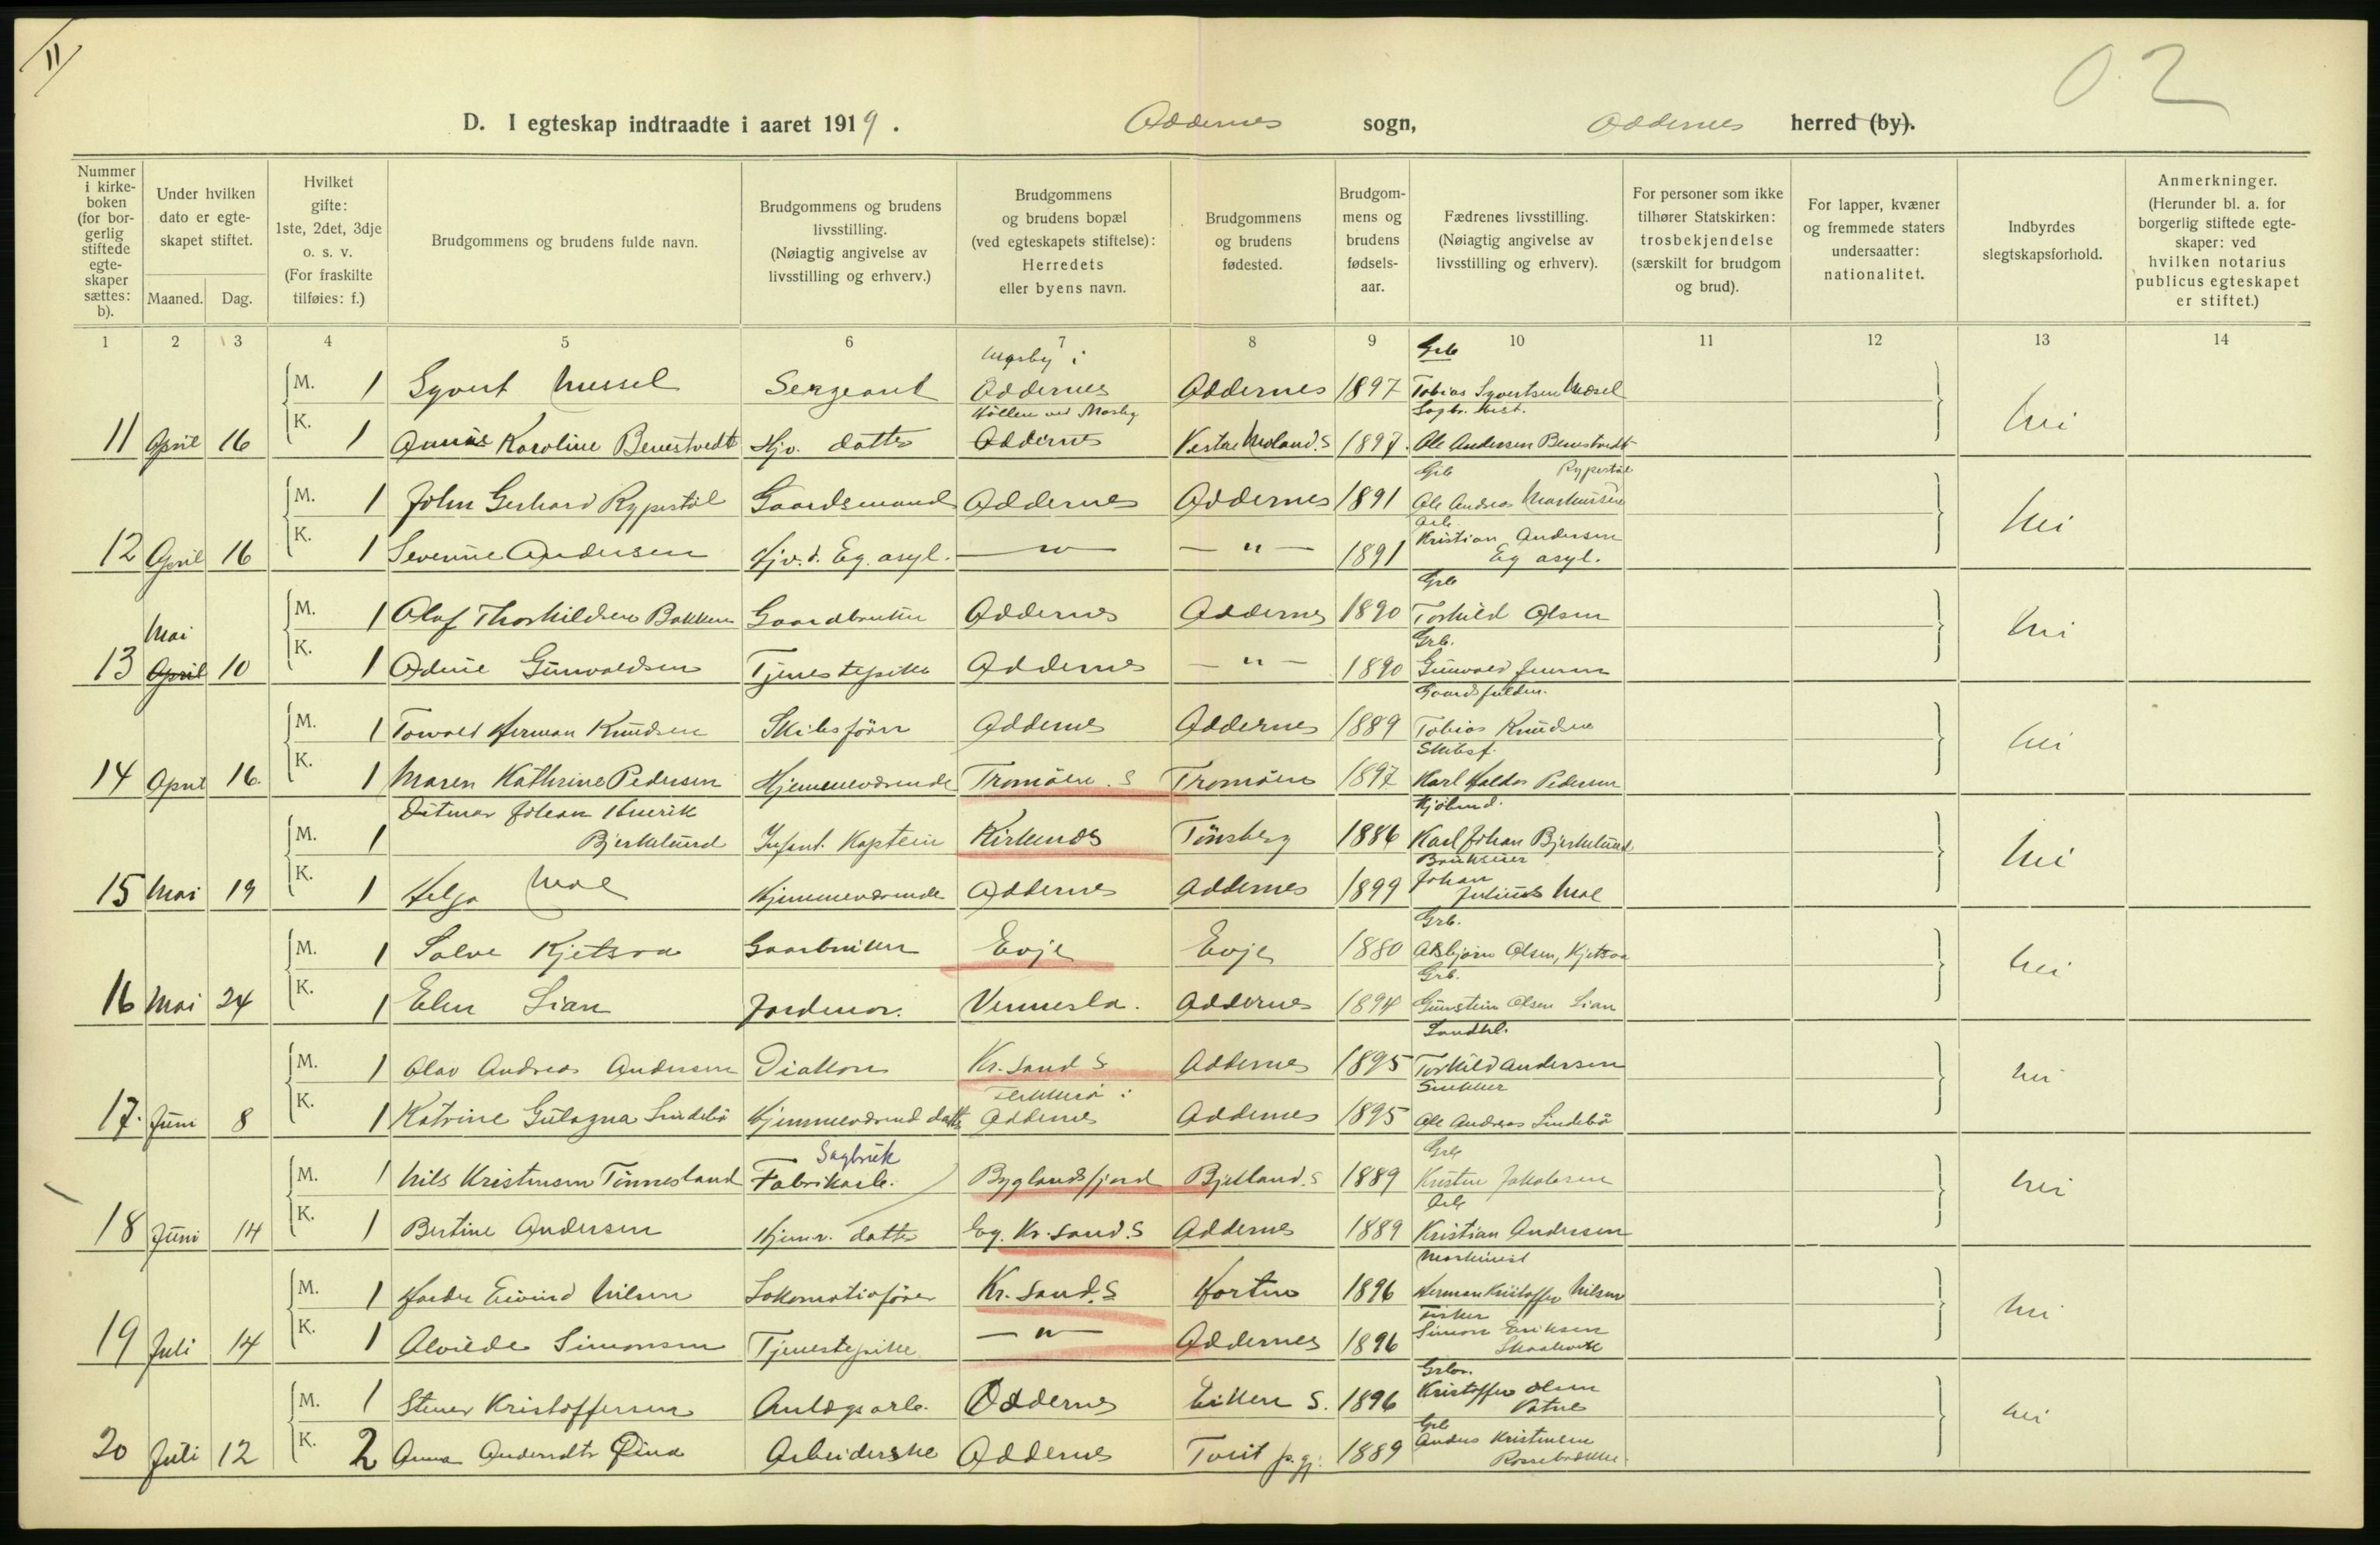 11
02
D. I egteskap indtraadte i aaret 1919. Oddernes sogn, Oddernes herred (by).
Nummer i kirkeboken (for borgerlig stiftede egteskaper sættes: b).
Under hvilken dato er egteskapet stiftet.
Maaned. Dag.
Hvilket gifte: 1ste, 2det, 3dje o. s. v. (For fraskilte tilføies: f.)
Brudgommens og brudens fulde navn.
Brudgommens og brudens livsstilling. (Nøiagtig angivelse av livsstilling og erhverv.)
Brudgommens og brudens bopæl (ved egteskapets stiftelse): Herredets eller byens navn.
Brudgommens og brudens fødested.
Brudgommens og brudens fødselsaar.
Fædrenes livsstilling. (Nøiagtig angivelse av livsstilling og erhverv).
For personer som ikke tilhører Statskirken: trosbekjendelse (særskilt for brudgom og brud).
For lapper, kvæner og fremmede staters undersaatter: nationalitet.
Indbyrdes slegtskapsforhold.
Anmerkninger. (Herunder bl. a. for borgerlig stiftede egteskaper: ved hvilken notarius publicus egteskapet er stiftet.)
1 2 3 4 5 6 7 8 9 10 11 12 13 14
Grb
M. 1 Syvert Mussel Sergeant Oddernes Oddernes 1897 Tobias Syvertsen
nei
11 April 16 K. 1 Karoline Benestvedt Hjv. datter Oddernes Vestre Moland. S 1897. Ole Andersen Benestvedt
Grb Rypestøl
M. 1 John Gerhard Rypestøl Gaardsmand Oddernes Oddernes 1891 Ole Andreas
nei
Arb. Kristian Andersen
12 April 16 K. 1 Severine Andersen Hjv. d. Eg. asyl. — " — — " — 1891 Eg asyl.
Grb
M. 1 Olaf Thorkildsen Bakken Gaardbruker Oddernes Oddernes 1890 Torkild Olsen
nei
Mai Grb.
13 April 10 K. 1 Odine Gunvaldsen Tjenestepike Oddernes — " — 1890 Gunvald Jensen
M. 1 Torvald Herman Knudsen Skibsfører Oddernes Oddernes 1889 Tobias Knudsen
nei
Skibsf.
14 April 16. K. 1 Maren Kathrine Pedersen Hjemmeværende Tromøen. S Tromøen 1897 Karl Pedersen
Ditmar Johan Henrik Kjøbmd.
M. 1 Bjerkelund Infant. Kaptein Kirkenes Tønsberg 1886 Karl Johan Bjerkelund.
nei
Johan
15 Mai 19 K. 1 Helga Moe Hjemmeværende Oddernes Oddernes 1899 Julius Moe
Grb.
M. 1 Salve Kjetsaa Gaarbruker Evje Evje 1880 Asbjørn Olsen, Kjetsaa
nei
Grb.
16 Mai 24 K. 1 Elen Lian Jordmor. Vennesla. Oddernes 1894 Gunstein Olsen Lian
Landhl.
M. 1 Olav Andreas Andersen Diakon Kr. sand S Oddernes 1895 Torkild Andersen
nei
Flekkerø i Snekker
17. Juni 8 K. 1 Katrine Gulagna Lindebø Hjemmeværend datter Oddernes Oddernes 1895 Ole Andreas Lindebø
Sagbruk Grb
M. 1 Nils Kristensen Tønnesland Fabrikarb. Byglandsfjord Bjelland. S 1889 Kristen Jakobsen
nei
Arb
18 Juni 14 K. 1 Bertine Andersen Hjemv. datter Eg. Kr. sand. S Oddernes 1889 Kristian Andersen
Maskinist
M. 1 Eivind Nilsen Lokomotivfører Kr. sand. S Horten 1896 Herman Kristoffer Nilsen
nei
Fisker Simon Eriksen
19 Juli 14 K. 1 Alvilde Simonsen Tjenestepike — " — Oddernes 1896
Kristoffer Olsen
M. 1 Stener Kristoffersen Anlægsarb. Oddernes Eiken S. 1896 Vatne
nei
Grb Anders Kristensen
20 Juli 12 K. 2 Anna Andersdtr Øina Arbeiderske Oddernes Tveit p. gj. 1889